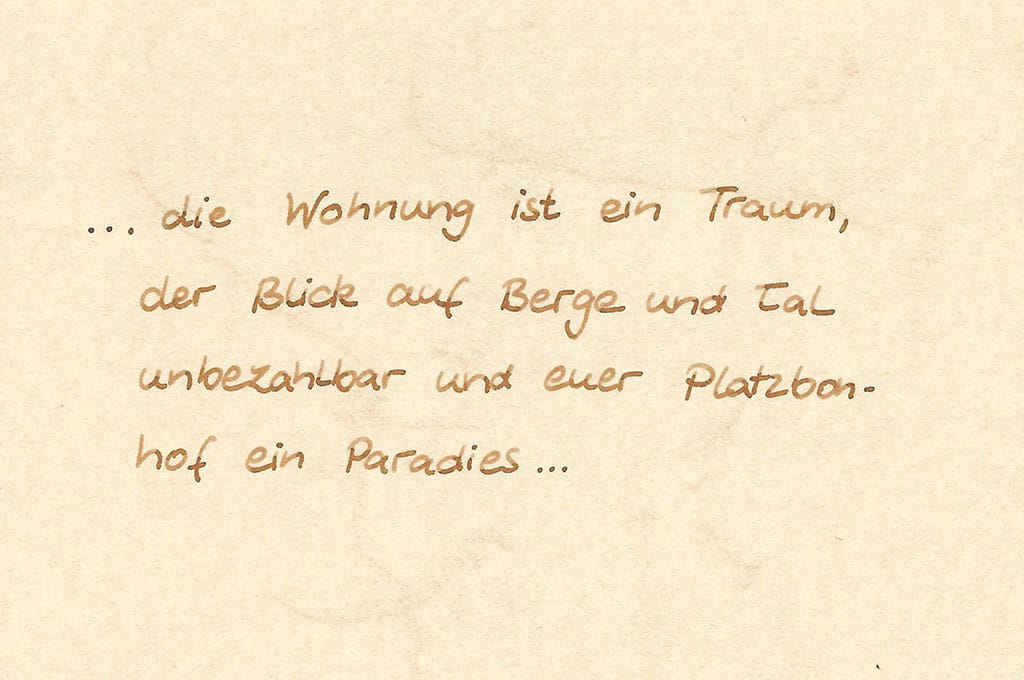 ... die Wohnung ist ein Traum,
der Blick auf Berge und Tal
unbezahlbar und euer Platzbon-
hof ein Paradies ...